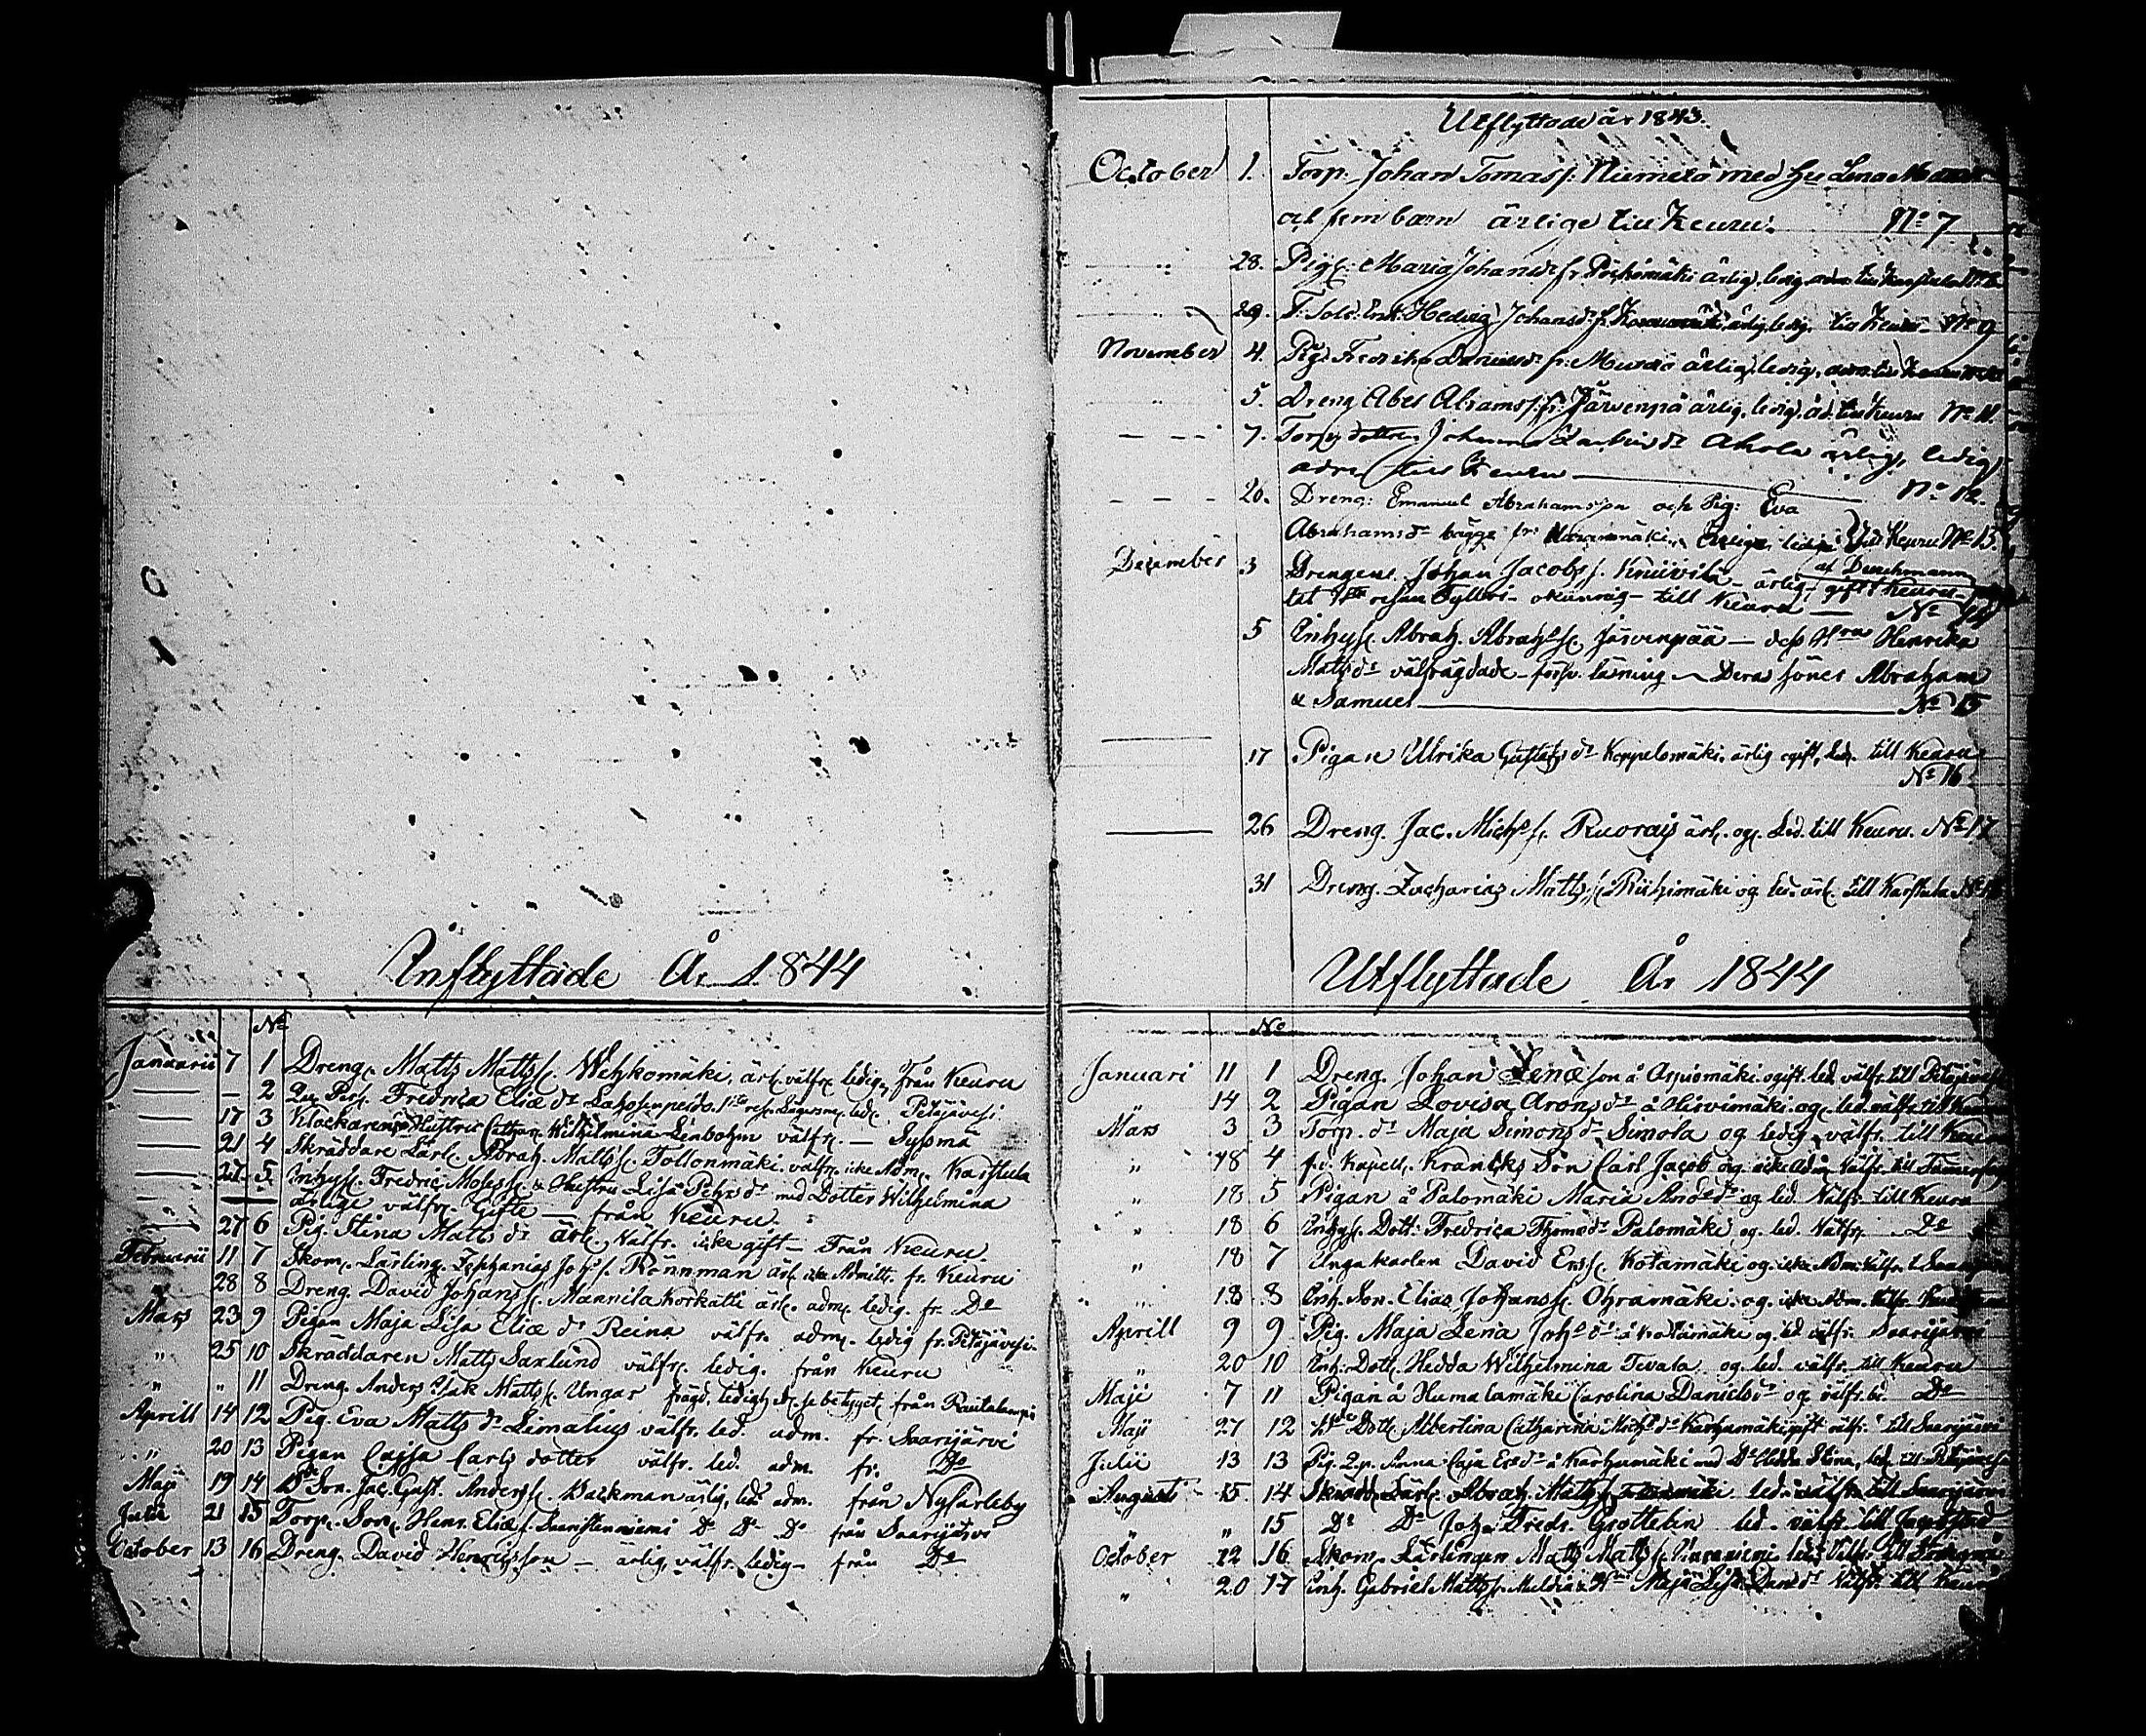 Inflyttade År 1844
No
Januarii 7 1 Dreng. Matts Mattss. Wehkomäki, ärl. välfr. ledig, från Keuru
— 2 Fredrica Eliæ dr led. Petäjävesi
17 3 Klockarens Hustru Cathar. Wilhelmina Lenbohm välfr. — Sysmä
21 4 Skräddare Lärl. Abrah. Mattss. Tollonmäki. välfr. icke Adm. Karstula
27 5 Inhyss. Fredric Moses s. & Hustru Lisa Pehrs dr med Dotter Wilhelmina
ärlige välfr. Gifte — från Keuru.
27 6 Pig. Stina Matts dr ärl. välfr. icke gift — från Keuru
Februarii 11 7 Skom. Lärling. Zephanias Joh. s. Rönnman ärl. icke Admitt. fr. Keuru
28 8 Dreng. David Johanss. Mannila Korkatti ärl. adm. ledig. fr. Do
Mars 23 9 Pigan Maja Lisa Eliæ dr Reina välfr. adm. ledig fr. Petäjävesi
" 25 10 Skräddaren Matts Saxlund välfr. ledig. från Keuru
" " 11 Dreng. Anders Isak Mattss. Ungar frägd, ledigh. se betyget, från Rautalampi
Aprill 14 12 Pig. Eva Matts dr Limalius välfr. led. adm. fr. Saarijärvi
" 20 13 Pigan Cajsa Carls dotter välfr. led. adm. fr. Do
Maji 19 14 Bde Son. Jac. Gust. Anderss. Backman ärlig, led. adm. från NyCarleby
Julii 21 15 Torp. Son. Henr. Eliæ s. Saaristenniemi Do Do Do från Saarijärvi
October 13 16 Dreng. David Henricsson — ärlig, välfr. ledig — från Do
Utflyttade år 1843.
October 1. Torp. Johan Tomass. Niemelä med Hu Lena
och fem barn ärlige till Keuru. No 7
" 28. Pig. Maria Johansdr fr. Pöckömäki ärlig, ledig, adm. till Karstula
" 29. F. Sold. Enk. Hedvig Johansdr fr. ärlig ledig. till Keuru No 9
November 4. Pig. Fredrika Danielsdr fr. ärlig, ledig, adm. till Keuru
" 5. Dreng Abel Abramss. fr. Järvenpä ärlig, ledig, ad. till Keuru No 11.
7. Torp. dottern Johanna dr Ahola ärlig, ledig,
adm. till Keuru No 12.
26. Dreng: Emanuel Abrahamsson och Pig: Eva
Abrahamsdr bägge fr. ärlige, ledige till Keuru No 13.
December 3 Drengens Johan Jacobss. Kniivilä — ärlig — gift
till Keuru — No 14
5 Inhyss. Abrah. Abrahss. Järvenpää — dess Hru Henrika
Mattsdr välfrägdade — försv. läsning — Dera söner Abraham
& Samuel No 15
17 Pigan Ulrika Gustafsdr Koppelomäki. ärlig ogift, led. till Keuru
No 16
26 Dreng. Jac. Michs s. Ruorais ärl. og. Led. till Keuru. No 17
31 Dreng. Zacharias Matts s. Riihimäki og. led. ärl. till Karstula No 18
Utflyttade År 1844
No
Januari 11 1 Dreng. Johan Lenæson å Arpiomäki. ogift. led. välfr. till Petäjävesi
" 14 2 Pigan Lovisa Arons dr å Hirvimäki. og. led. välfr. till Keuru
Mars 3 3 Torp. dr Maja Simons dr Simola og. ledig, välfr. till Keuru
" 18 4 f.d. Kapell. Krancks Son Carl Jacob og. icke Adm. välfr. till Tammerfors
" 18 5 Pigan å Palomäki Maria Anders dr og. led. Välfr. till Keuru
" 18 6 Inhys. Dott. Fredrica Thomæ dr Palomäki, og. led. Välfr. Do
" 18 7 Ungakarlen David Erss. Kotamäki og. icke Adm. Välfr. t. Saarijärvi
" 18 8 Inh. Son. Elias Johanss. Ohramäki. og. icke Adm. Välfr.
Aprill 9 9 Pig. Maja Lena Johs dr å Kotamäki og. led. välfr. Saarijärvi
" 20 10 Inh. Dott. Hedda Wilhelmina Tivala og. led. välfr. till Keuru
Maji 7 11 Pigan å Humalamäki Carolina Daniels dr og. välfr. Do
Maji 27 12 Bde Dott. Albertina Catharina Michs dr Karhumäki, gift välfr. till Saarijärvi
Julii 13 13 Pig. Anna Caja Ers dr å Karhumäki med Dr Hedda Stina, led. till Petäjävesi
Augusti 15 14 Skrädd. Lärl. Abrah. Matts s. Tollonmäki led. välfr. till Saarijärvi
" " 15 Do Do Joh. Fredr. Grottelin led. välfr. till Jacobstad
October 12 16 Skom. Lärlingen Matts Matts s. led. Välfr. till
" 20 17 Inh. Gabriel Matts s. & Hru Maja Lisa Davids dr Välfr. till Keuru